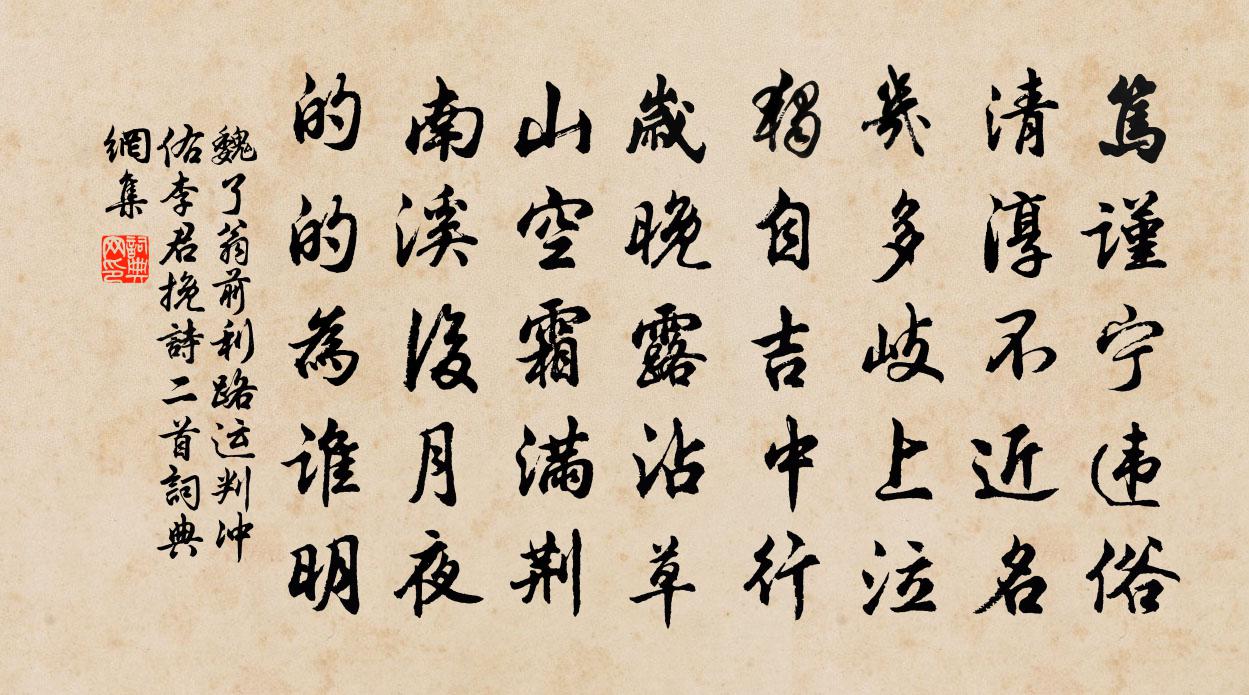 篤謹宁违俗
清淳不近名
幾多岐上泣
獨自吉中行
歲晚露沾草
山空霜滿荆
南溪後月夜
的的為誰明
魏了翁前利路运判冲
佑李君挽詩二首詞典
網集
詞典
网印